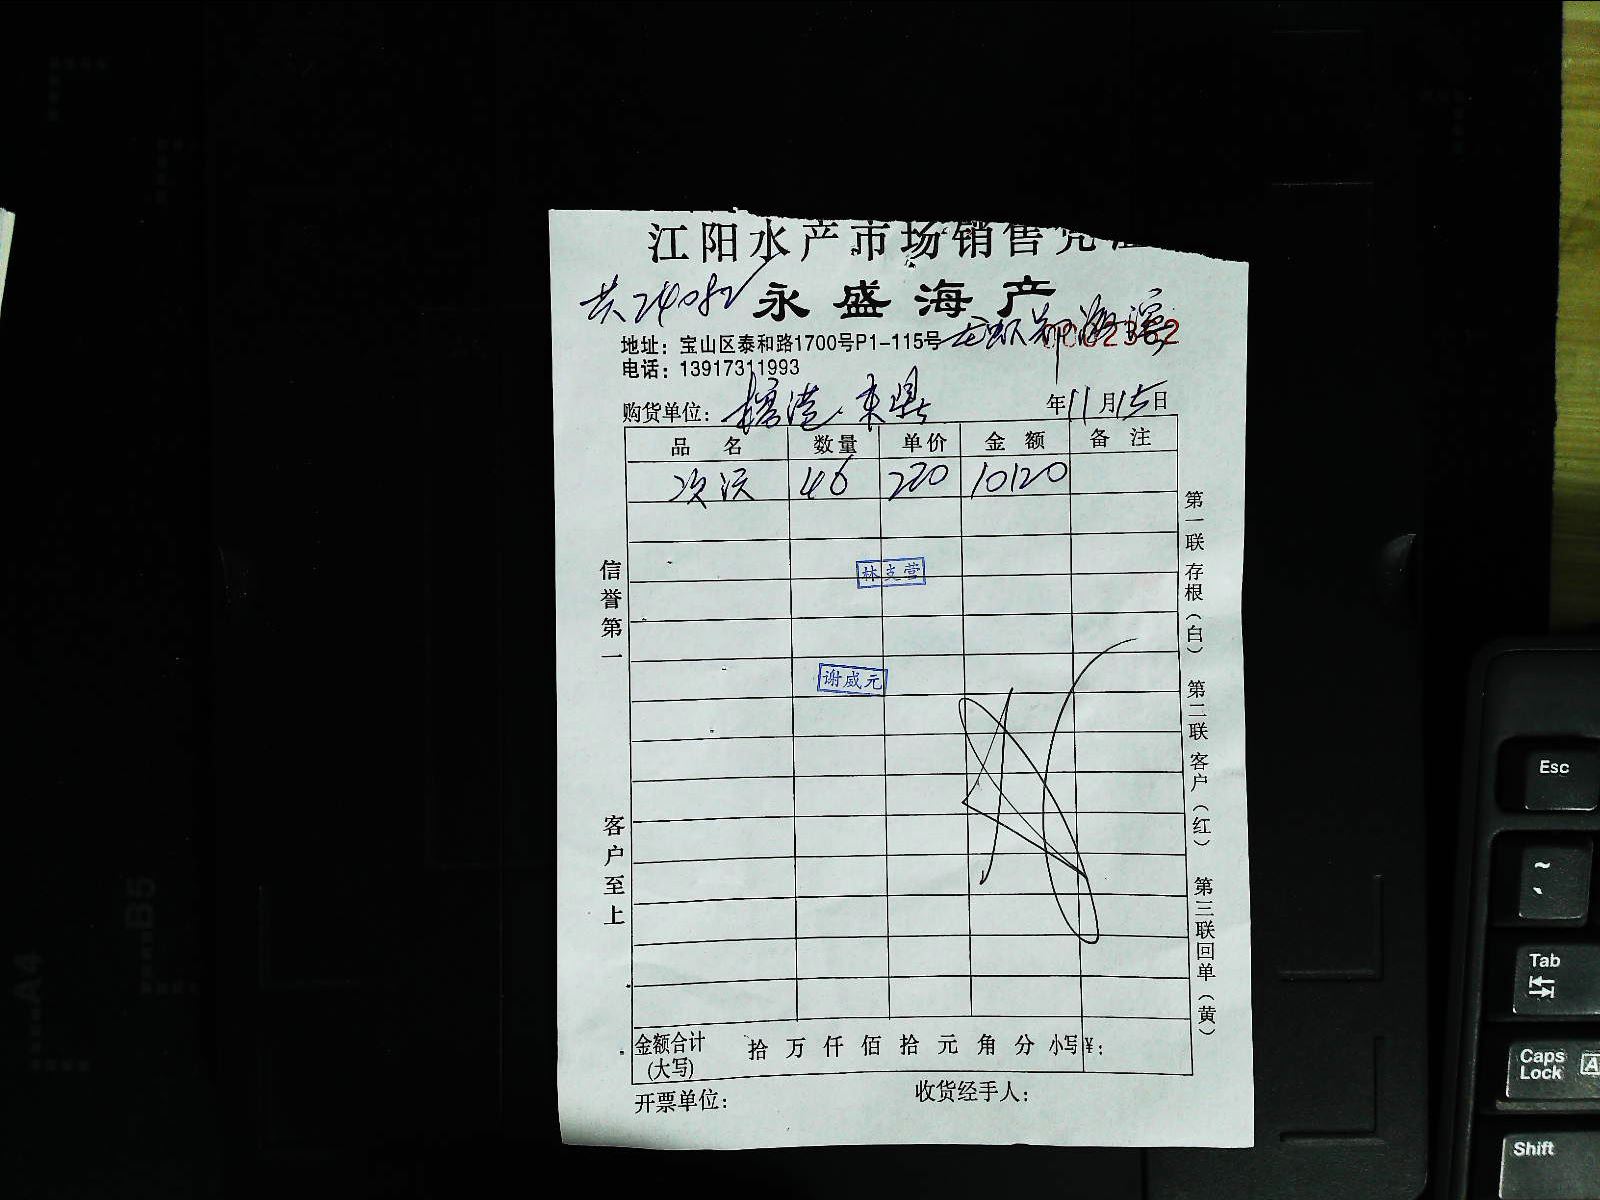 江阳水产市场销售凭证
共240
永盛海产
地址：宝山区泰和路1700号P1-115号
0002362
电话：13917311993
购货单位：
年11月15日
品名 数量 单价 金额 备注
46 220 10120
林支营
谢威元
信誉第一
客户至上
第一联存根（白） 第二联客户（红） 第三联回单（黄）
金额合计（大写） 拾万仟佰拾元角分 小写¥：
开票单位： 收货经手人：
B5
A4
Esc
~
Tab
Caps Lock A
Shift